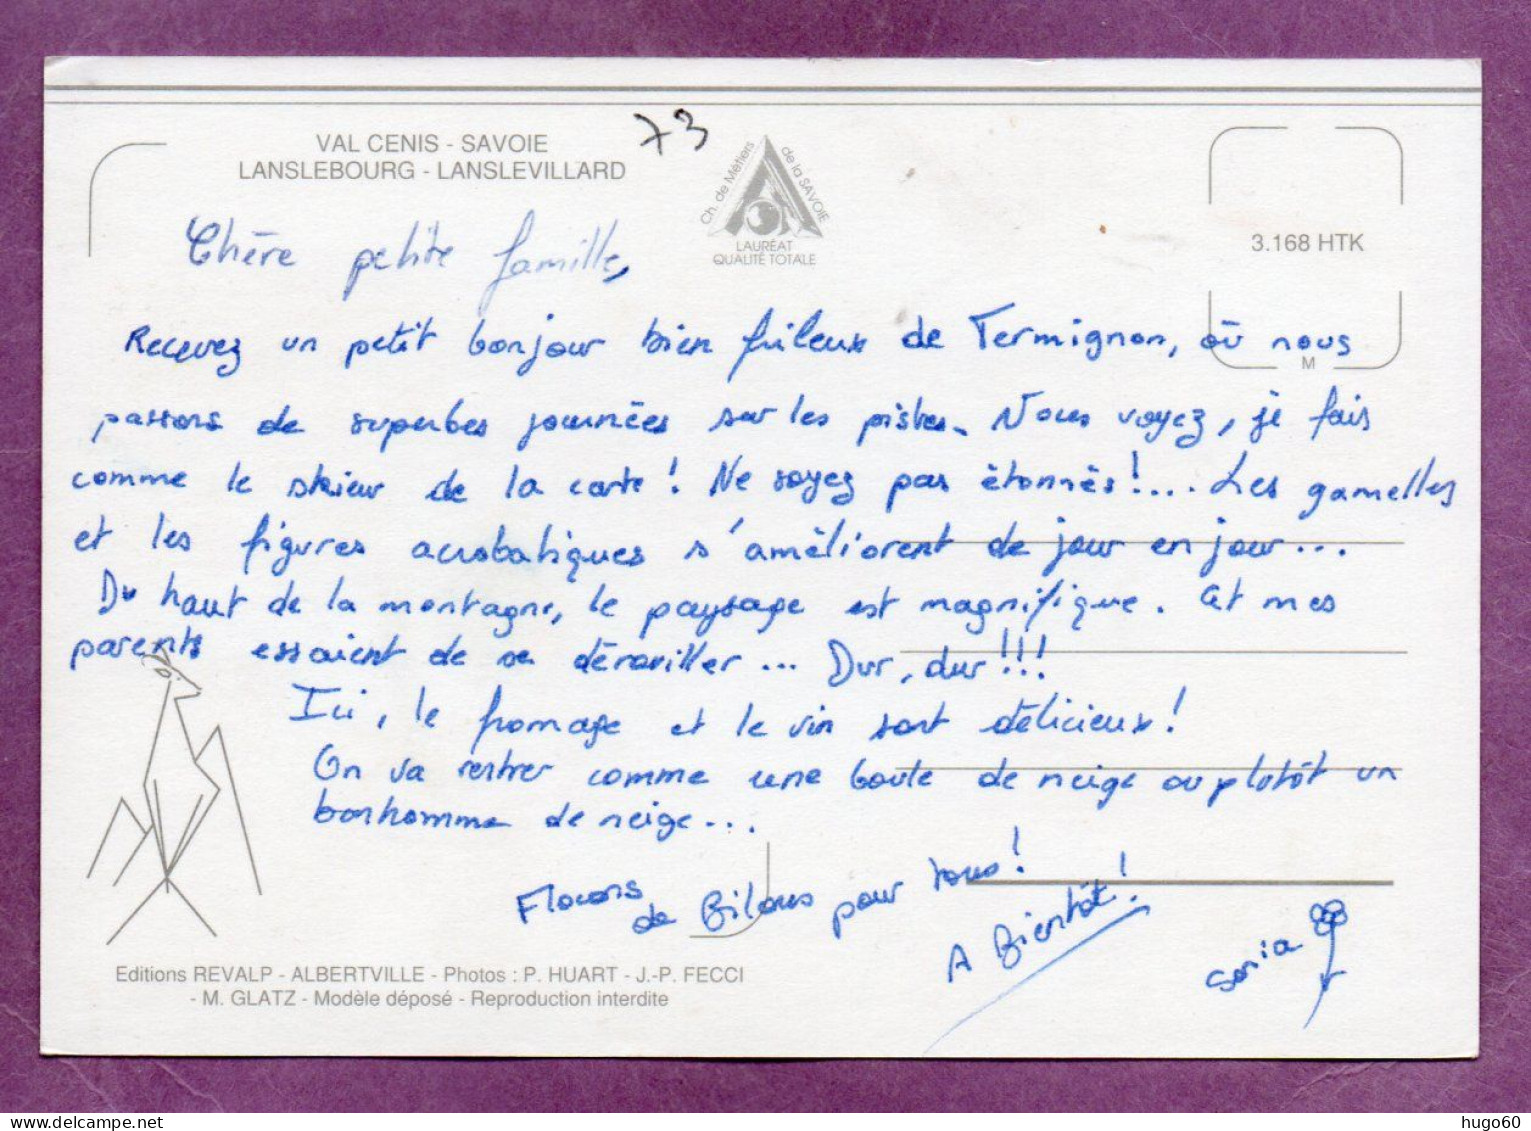 VAL CENIS - SAVOIE
LANSLEBOURG - LANSLEVILLARD
73
Ch. de Métiers de la SAVOIE
LAURÉAT
QUALITÉ TOTALE
3.168 HTK
M
Chère petite famille,
Recevez un petit bonjour bien frileux de Termignon, où nous
passons de superbes journées sur les pistes. Vous voyez, je fais
comme le skieur de la carte ! Ne soyez pas étonnés !.... Les gamelles
et les figures acrobatiques s'améliorent de jour en jour...
Du haut de la montagne, le paysage est magnifique. Et mes
parents essaient de se dérouiller... Dur, dur !!!
Ici, le fromage et le vin sont délicieux !
On va rentrer comme une boule de neige ou plutôt un
bonhomme de neige...
Flocons
de Bilous pour tous !
A Bientôt !
Sonia
Editions REVALP - ALBERTVILLE - Photos : P. HUART - J.-P. FECCI
- M. GLATZ - Modèle déposé - Reproduction interdite
delcampe.net
hugo60